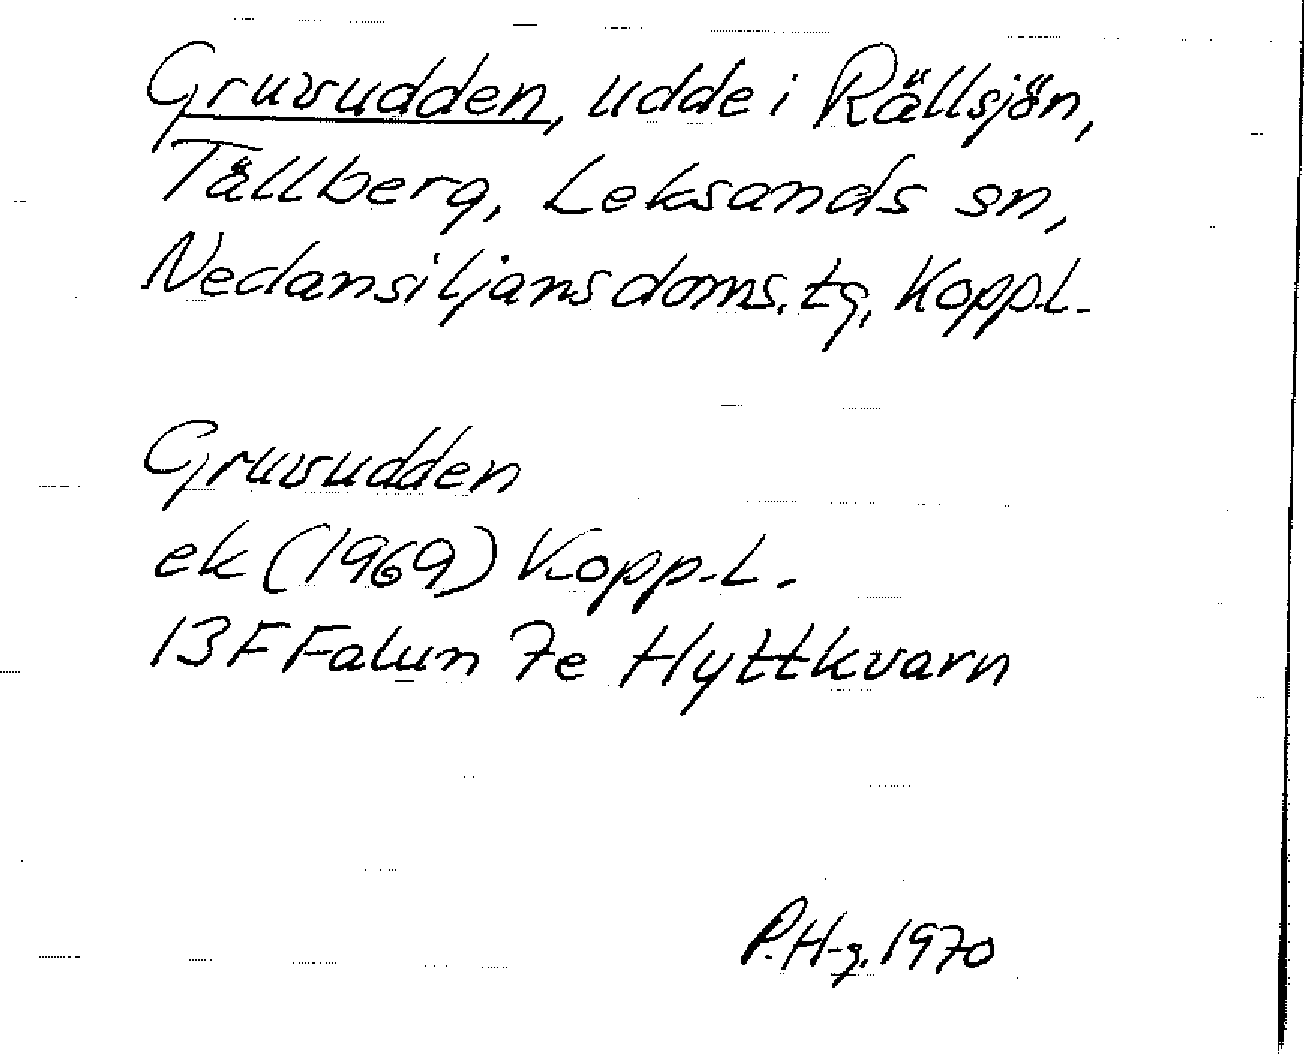 Gruvudden, udde i Rällsjön,
Tällberg, Leksands sn,
Nedansiljans doms. tg, Kopp.L.
Gruvudden
ek (1969) Kopp.L.
13F Falun 7e Hyttkvarn
P.H-g. 1970